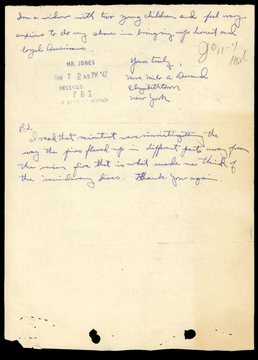 I'm a widow with two young children and feel very
anxious to do my share in bringing up honest and
loyal Americans.
MR. JONES
7 2 49 PM '47
RECEIVED
FBI
Yours truly,
Mrs Milo
Elizabethtown
New York
P.S.
I read that scientist
the way the fires flared up in different parts away from
the main fire that is what made me think of
the incendiary. Thank you again.